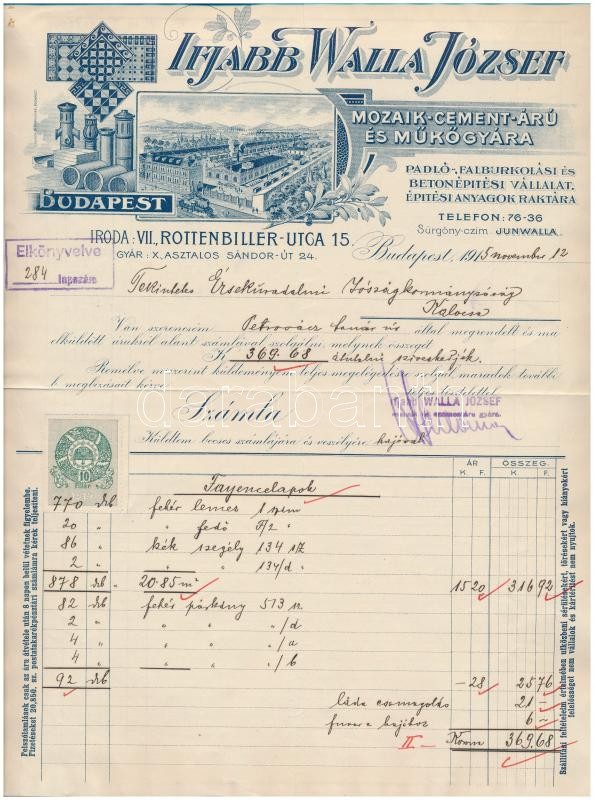 IFJABB WALLA JÓZSEF
MOZAIK-CEMENT-ÁRÚ
ÉS MŰKŐGYÁRA
PADLÓ-, FALBURKOLÁSI ÉS
BETONÉPITÉSI VÁLLALAT.
ÉPITÉSI ANYAGOK RAKTÁRA
TELEFON: 76-36
Sürgöny-czim. JUNWALLA.
BUDAPEST
IRODA: VII., ROTTENBILLER-UTCA 15.
GYÁR: X, ASZTALOS SÁNDOR-ÚT 24.
Budapest, 1915 november 12
Elkönyvelve
284 lapszám
Tekintetes Érsekuradalmi Jószágkormányzóság
Kalocsa
Van szerencsém Petrovácz tanár úr által megrendelt és ma
elküldött árukról alant számlával szolgálni, melynek összegét
K 369.68 átutalni sziveskedjék.
Remélve miszerint küldeményem teljes megelégedésre szolgál, maradok további
b. megbizásait kérve
teljes tisztelettel
ifjabb WALLA JÓZSEF
Számla
Küldtem becses számlájára és veszélyére hajóval
10
fillér
ÁR ÖSSZEG.
K. F. K. F.
Fayencelapok
770 drb fehér lemez I szm
20 " " fedő F/2 "
86 " kék szegély 134 sz
2 " " 134/d "
878 drb 20.85 m² 15 20 316 92
82 drb fehér párkány 513 sz.
2 " " " " /d
4 " " " " /a
4 " " " " /b
92 drb -28 25 76
láda csomagolás 21 -
fuvar a hajóhoz 6 -
II- Korona 369.68
Felszólamlások csak az áru átvétele után 8 napon belül vétetnek figyelembe.
Fizetéseket 20,850. sz. postatakarékpénztári számlámra kérek teljesíteni.
Szállítási feltételeim értelmében utközbeni sérülésekért, törésekért vagy hiányokért
felelősséget nem vállalok és kártérítést nem nyujtok.
darabanth